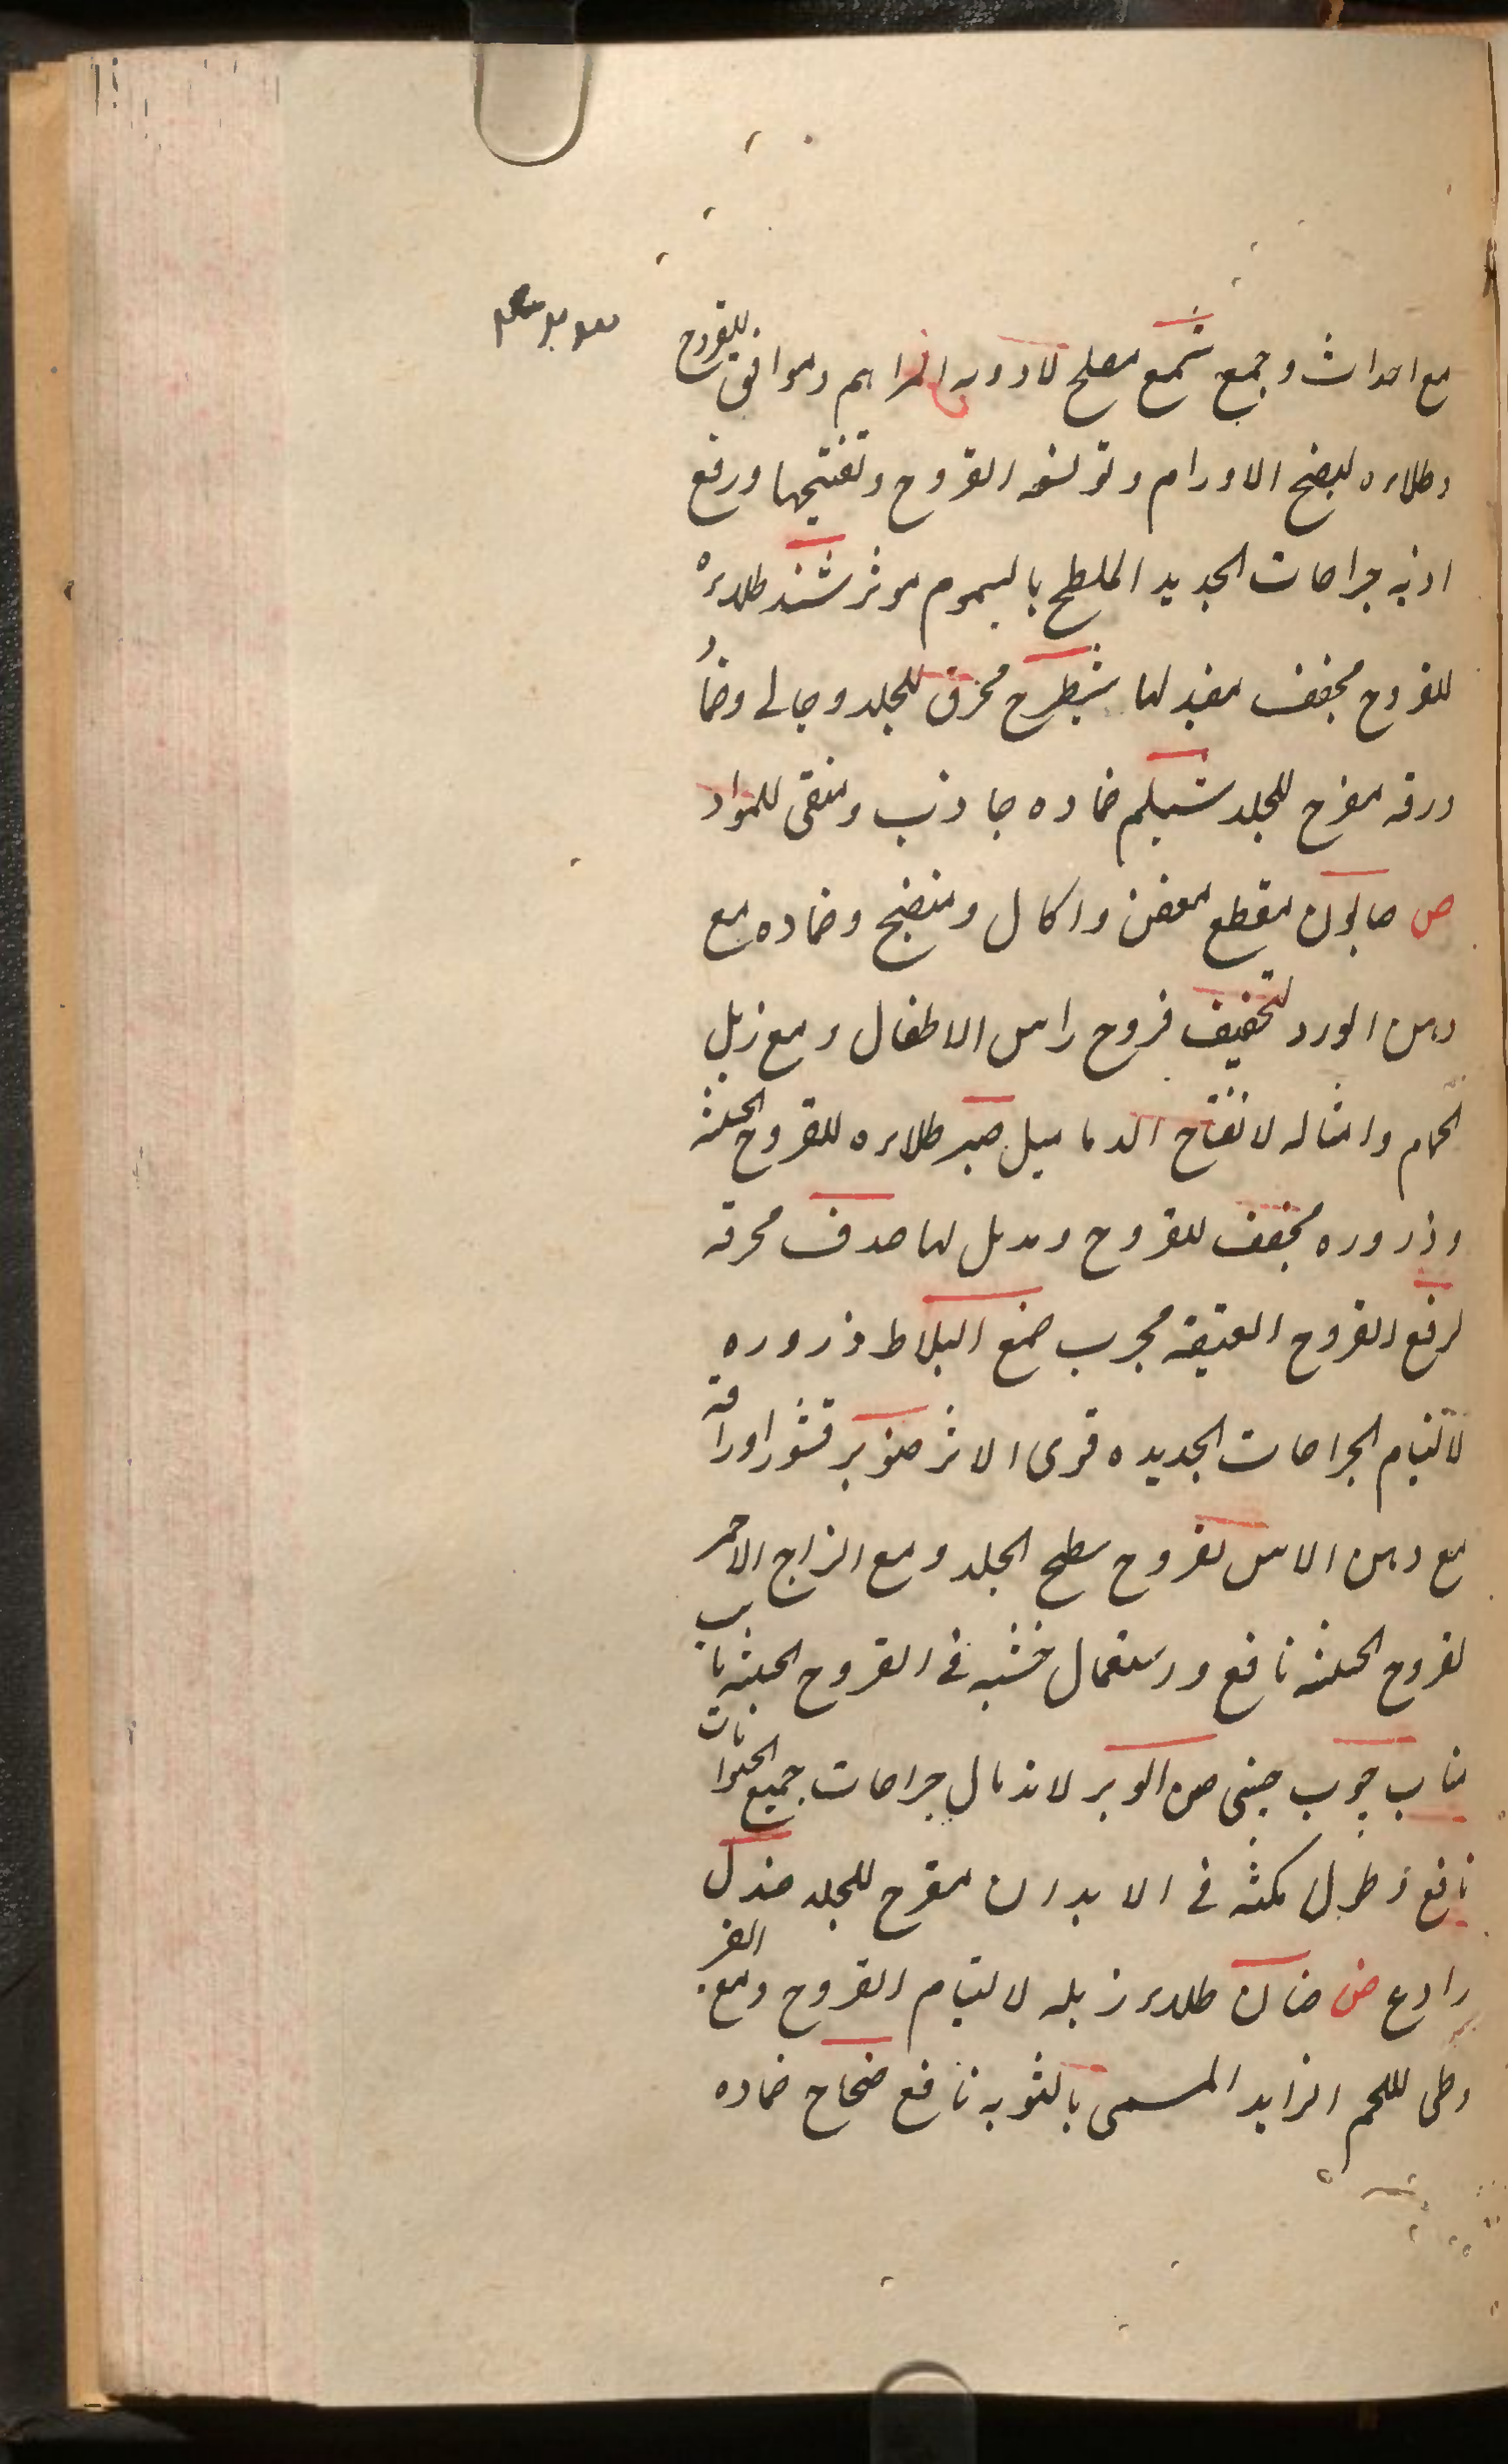 مع احداث وجمع شمع مصلح لادويه المراهم وموافق للقروح
وطلاءه لنضج الاورام و القروح وتفتيحها ورفع
اذيه جراحات الجديد الملطح بالسموم موثر شند طلاءه
للقروح مجفف مفيد لها شيطرح محرق للجلد وجالى وضماد
ورقه مقرح للجلد شيلم ضماده جاذب ومنقى للمواد
ص صابون مقطع معفن واكال ومنضج وضماده مع
دهن الورد لتجفيف قروح راس الاطفال ومع زبل
الحمام وامثاله لانفتاح الدماميل صبر طلاءه للقروح الخبيثه
وذروره مجفف للقروح ومدمل لها صدف محرقه
لرفع القروح العتيقه مجرب صمغ البلاط ذروره
لالتيام الجراحات الجديده قوى الاثر صنوبر قشور اوراقه
مع دهن الاس لقروح سطح الجلد ومع الزاج الاحمر
لقروح الخبيثه نافع واستعمال خشبه فى القروح الخبيثه
مناب چوب چينى صن الوبر لاندمال جراحات جميع الحيوانات
نافع وطول مكثه فى الابدان مقرح للجلد صندل
رادع ض ضان طلاء زبله لالتيام القروح ومع
وطى للحم الزايد المسمى بالتوبه نافع ضجاج ضماده